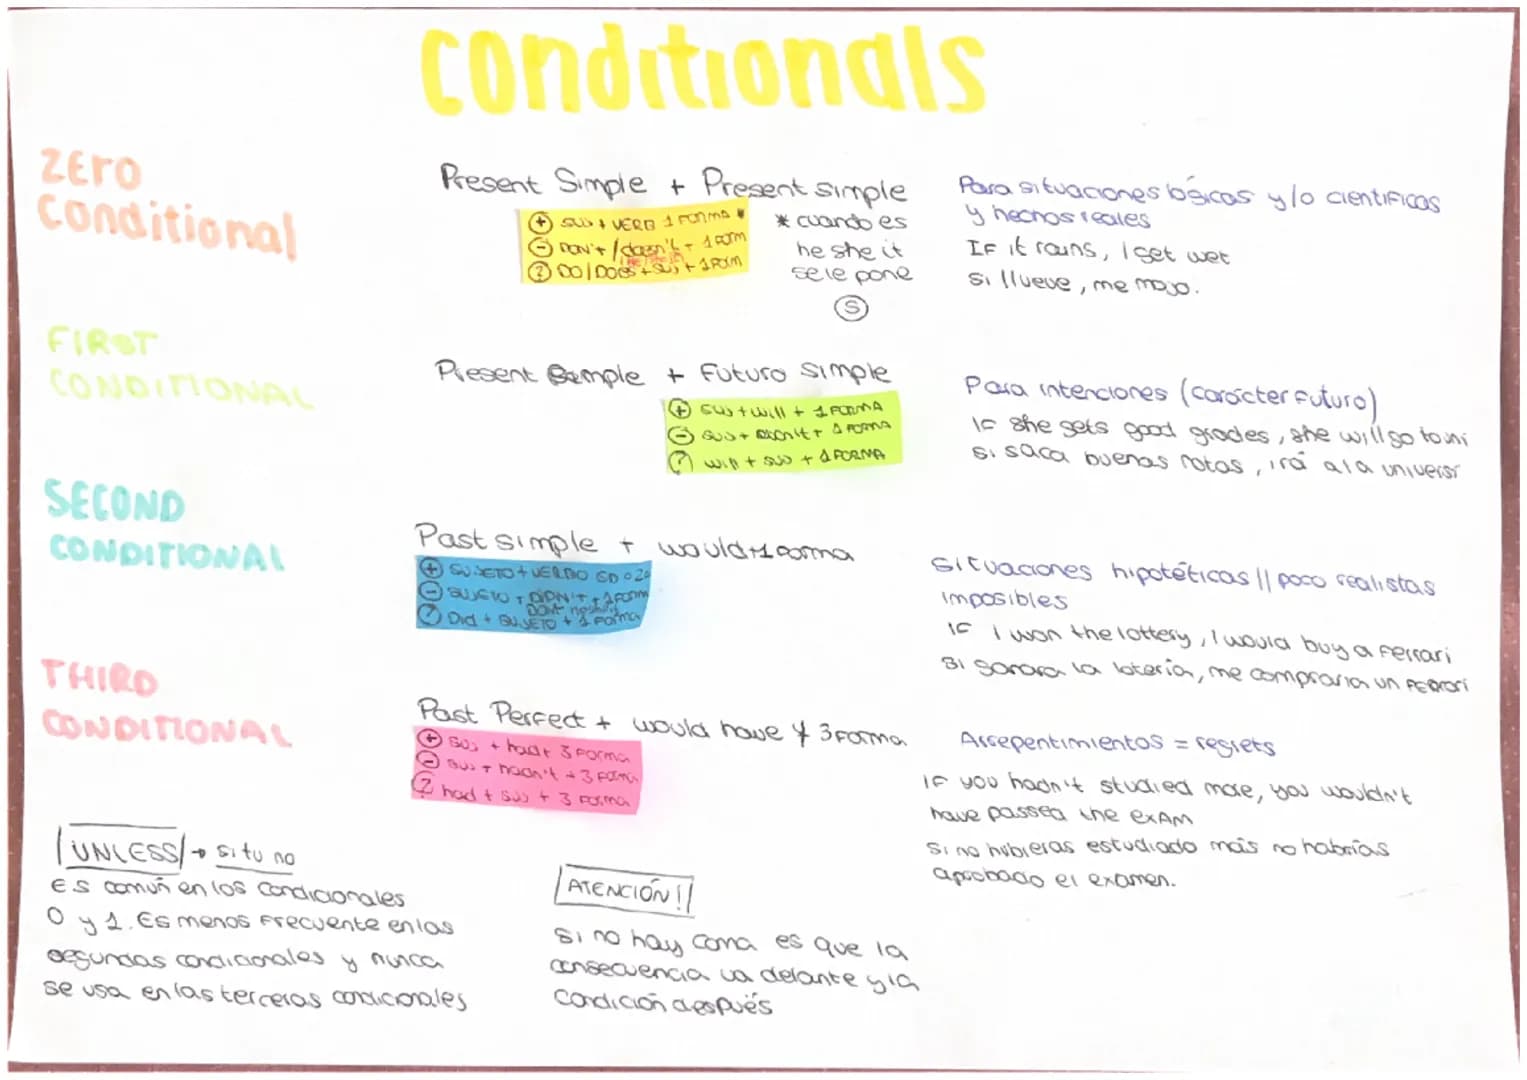 conditionals
Zero
Conditional
Present Simple + Present simple
+ SUJ + VERB 1 FORMA *
- DON'T / doesn't + 1 FORM
he/she/it
? DO / DOES + SUJ + 1 FORM
* cuando es
he she it
se le pone
S
Para situaciones lógicas y/o científicas
y hechos reales
IF it rains, I get wet
Si llueve, me mojo.
FIRST
CONDITIONAL
Present Semple + Futuro Simple
+ SUJ + will + 1 FORMA
- SUJ + won't + 1 FORMA
? Will + SUJ + 1 FORMA
Para intenciones (carácter futuro)
IF she gets good grades, she will go to uni
Si saca buenas notas, irá a la univers
SECOND
CONDITIONAL
Past simple + would+1 forma
+ SUJETO + VERBO ED o 2a
- SUJETO + DIDN'T + 1 FORM
? Did + SUJETO + 1 Forma
Situaciones hipotéticas // poco realistas
imposibles
IF I won the lottery, I would buy a Ferrari
Si ganara la lotería, me compraría un Ferrari
THIRD
CONDITIONAL
Past Perfect + would have + 3 Forma
+ SUJ + had + 3 Forma
- SUJ + hadn't + 3 Forma
? had + SUJ + 3 Forma
Arrepentimientos = regrets
IF you hadn't studied more, you wouldn't
have passed the exam
Si no hubieras estudiado más no habrías
aprobado el examen.
UNLESS → si tu no
ES común en los condicionales
0 y 1. Es menos frecuente en las
segundas condicionales y nunca
se usa en las terceras condicionales
ATENCIÓN!!
Si no hay coma es que la
consecuencia va delante y la
condición después